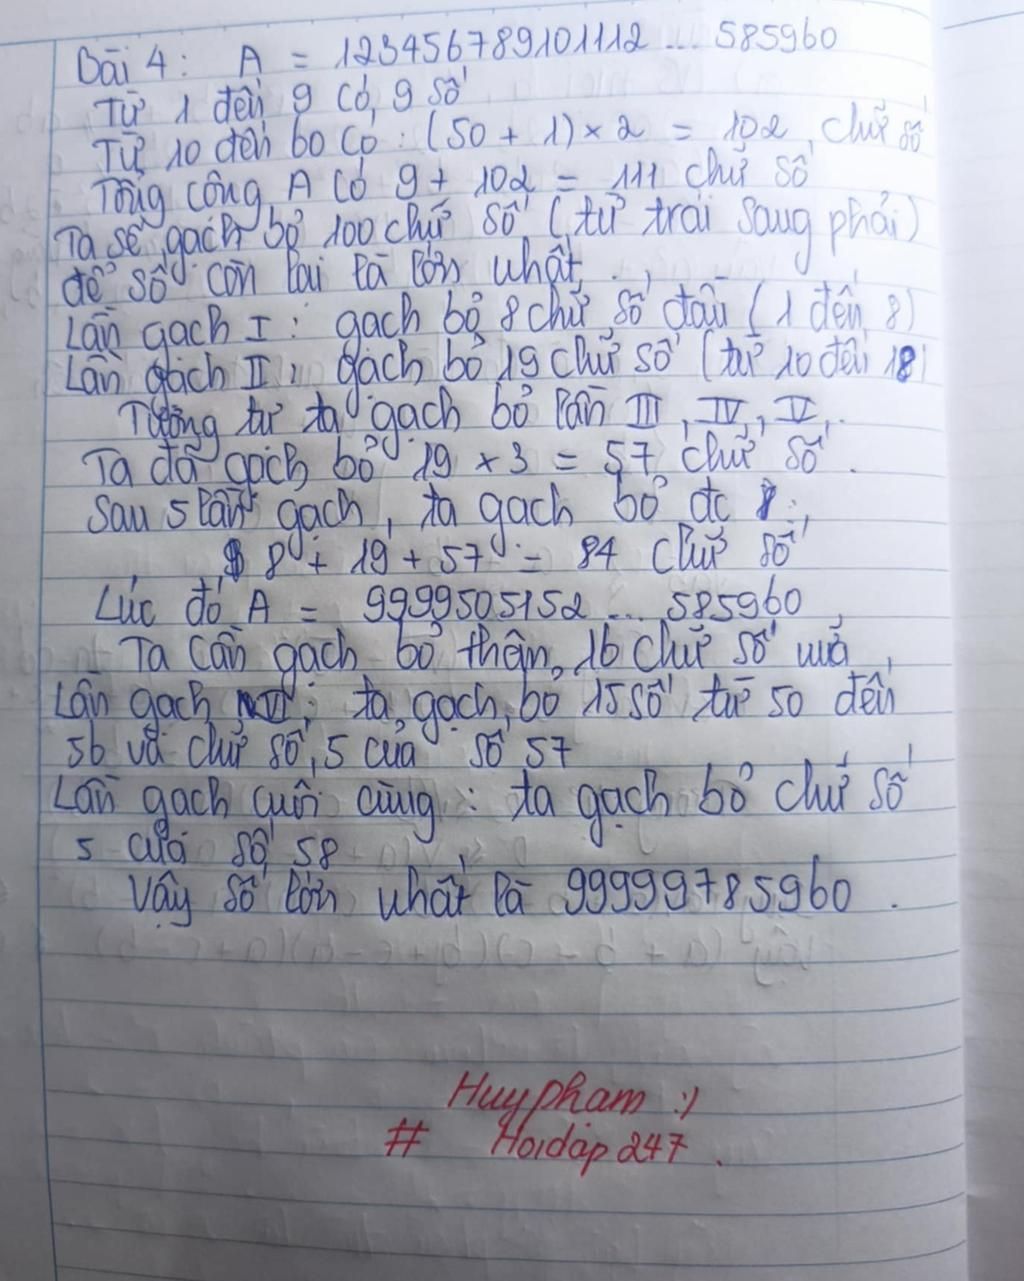 Bài 4: A = 123456789101112 ... 585960
Từ 1 đến 9 có 9 số
Từ 10 đến 60 có : (50 + 1) × 2 = 102 chữ số
Tổng cộng A có 9 + 102 = 111 chữ số
Ta sẽ gạch bỏ 100 chữ số (từ trái sang phải)
để số còn lại là lớn nhất.
Lần gạch I : gạch bỏ 8 chữ số đầu (1 đến 8)
Lần gạch II : gạch bỏ 19 chữ số (từ 10 đến 18)
Tương tự ta gạch bỏ lần III, IV, V,.
Ta đã gạch bỏ 19 × 3 = 57 chữ số.
Sau 5 lần gạch, ta gạch bỏ đc :
8 + 19 + 57 = 84 chữ số
Lúc đó A = 9999505152 ... 585960
Ta cần gạch bỏ thêm 16 chữ số nữa
Lần gạch VI : ta gạch bỏ 15 số từ 50 đến
56 và chữ số 5 của số 57
Lần gạch cuối cùng : ta gạch bỏ chữ số
5 của số 58
Vậy số lớn nhất là 99999785960.
Huy pham :)
# Hoidap 247.